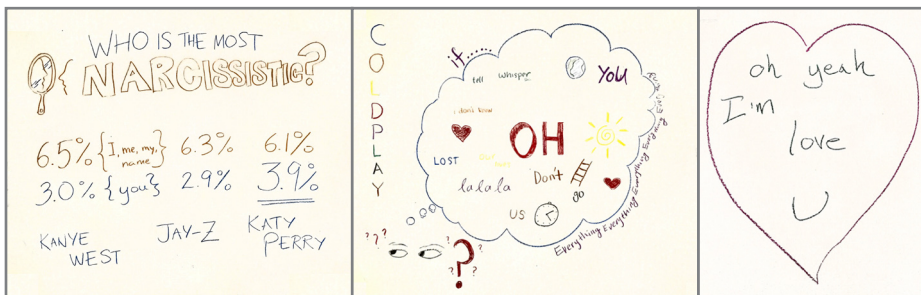 WHO IS THE MOST
NARCISSISTIC?
6.5% {I, me, my, name} 6.3% 6.1%
3.0% {you} 2.9% 3.9%
KANYE WEST JAY-Z KATY PERRY
COLDPLAY
if......
tell whisper You
i don't know
OH
LOST
Don't
la la la
US
Everything Everything Everything Everything Everything
? ? ?
? ? ? ? ?
oh yeah
I'm
love
U